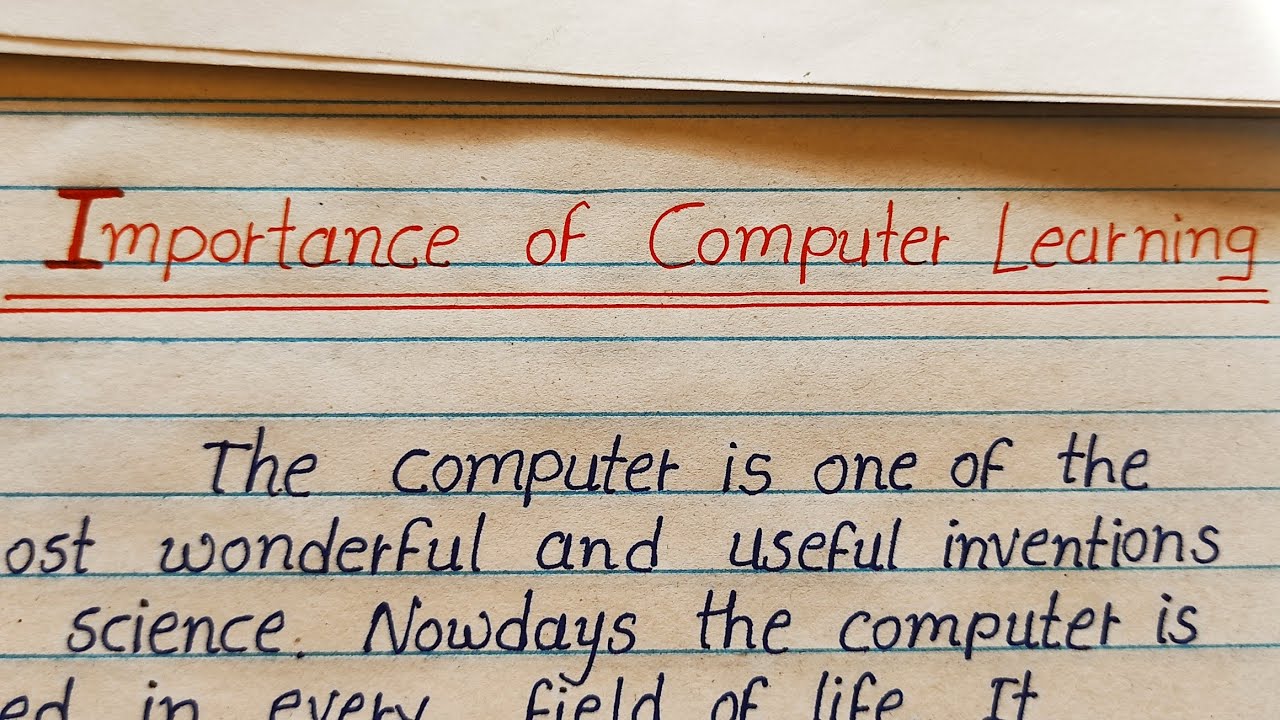 Importance of Computer Learning
The computer is one of the
ost wonderful and useful inventions
science. Nowdays the computer is
ed in every field of life It